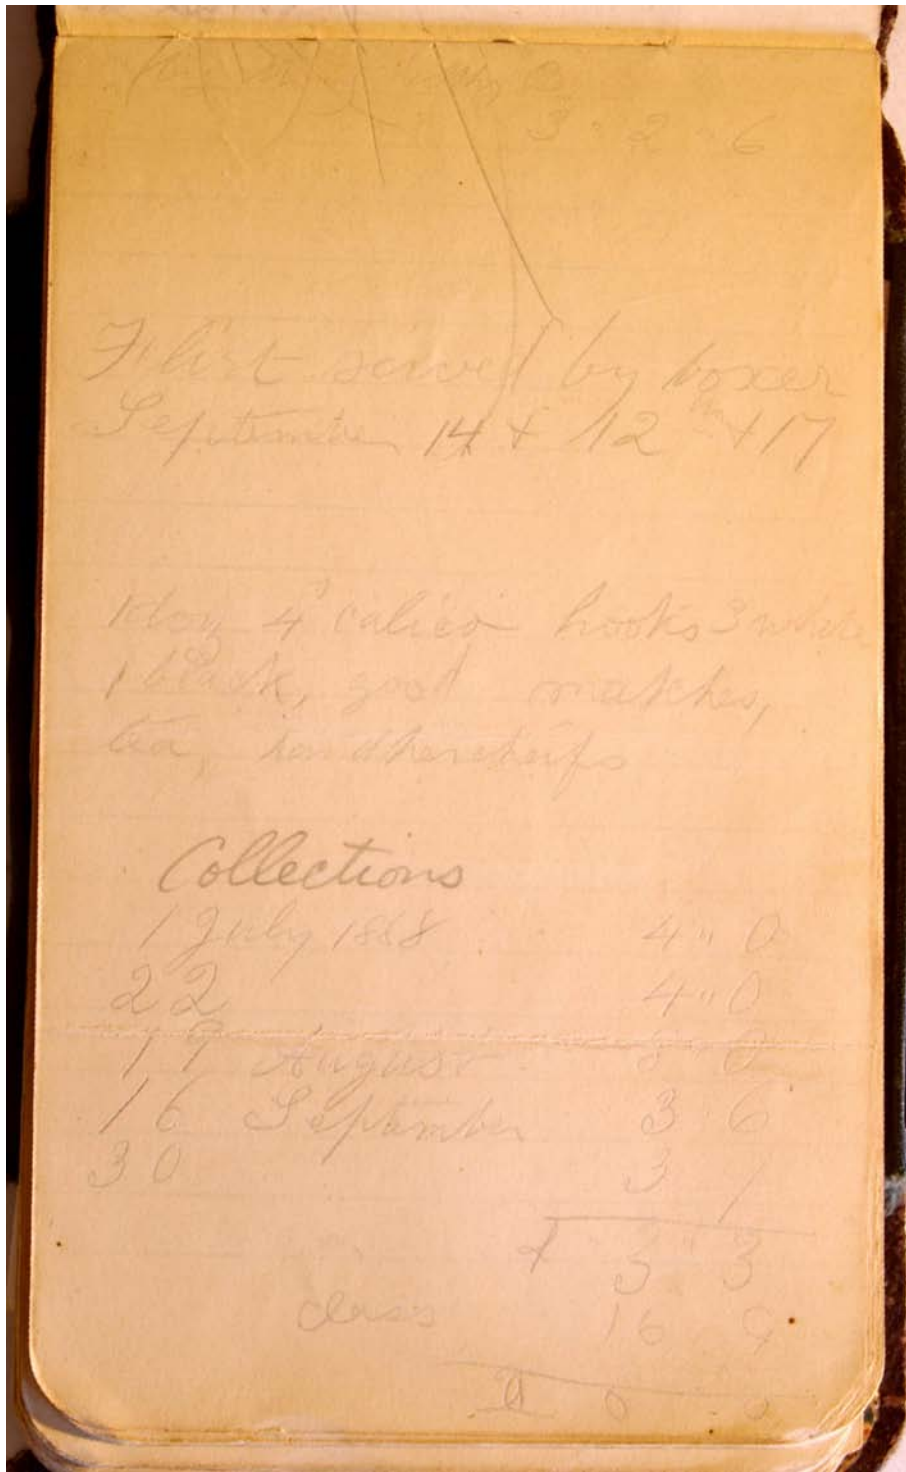 3 " 2 " 6
Flirt served by boxer
September 14 + 12 th + 17
4 calico hooks 3 white
1 black, good matches,
tea, handhercheifs
Collections
1 July 1868 4 " 0
22 4 " 0
19 August
16 September 3 6
30 3 1
1 3 " 3
class 16 9
0 0